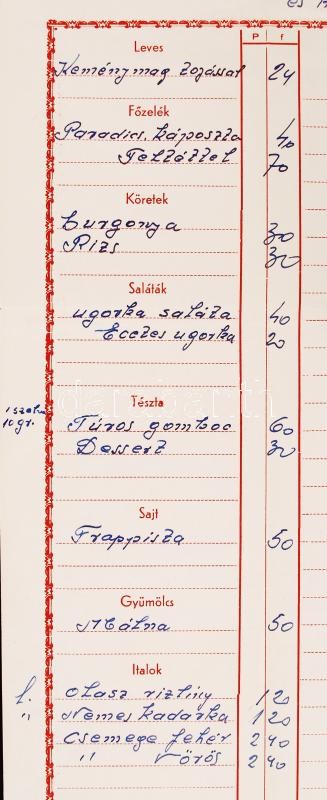 és
P f
Leves
Keménymag tojással 24
Főzelék
Paradics. káposzta 40
Feltéttel 70
Köretek
Burgonya 30
Rizs 30
Saláták
ugorka saláta 40
Ecetes ugorka 20
Tészta
10 gr.
Túros gomboc 60
Dessert 30
Sajt
Trappista 50
Gyümölcs
Málna 50
Italok
l. olasz rizling 120
" Nemes kadarka 120
" Csemege fehér 240
" vörös 240